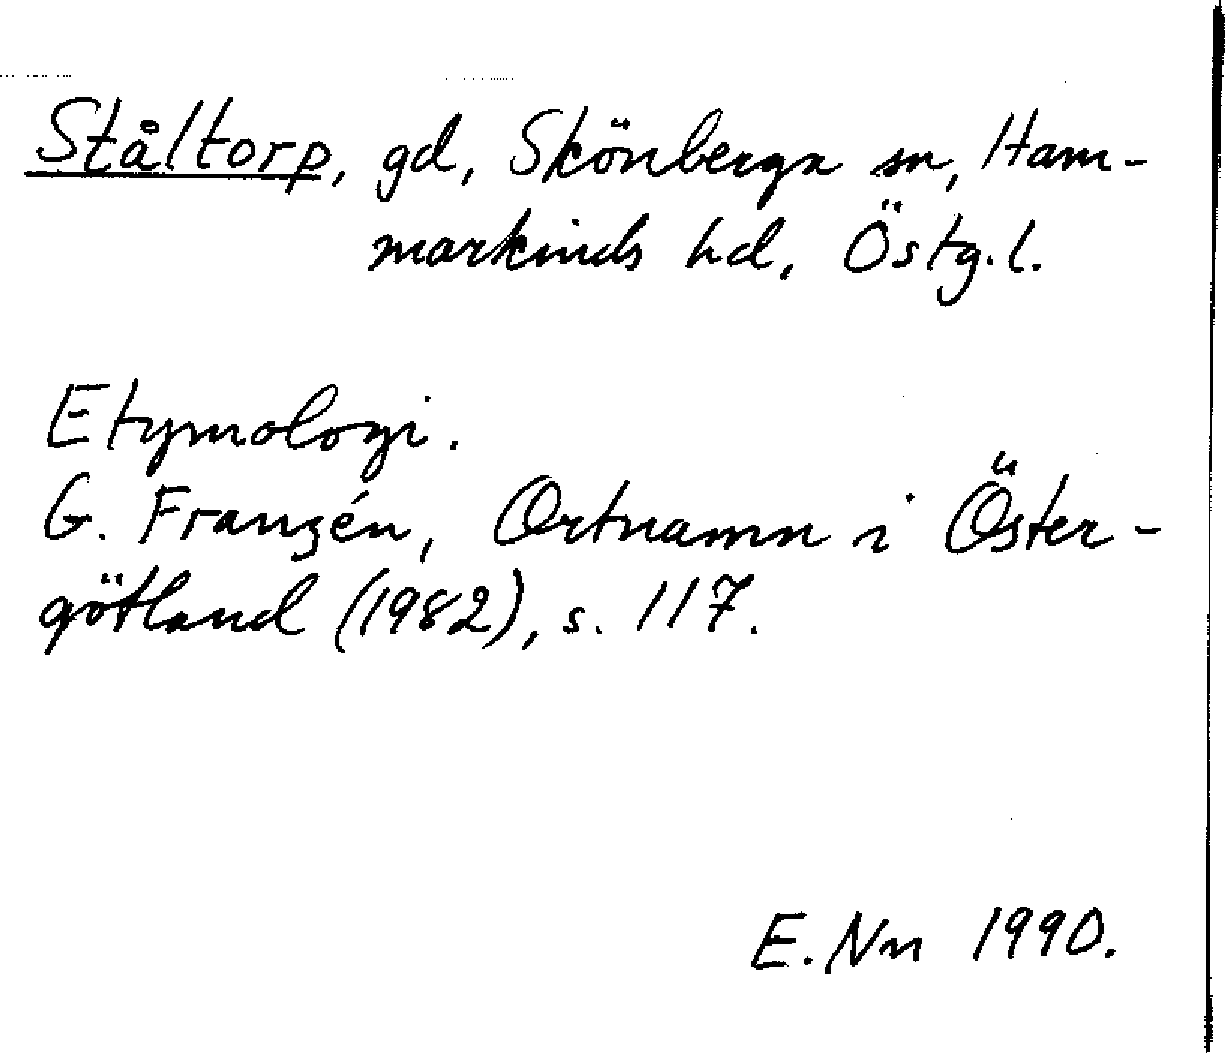 Ståltorp, gd, Skönberga sn, Ham-
markinds hd, Östg.l.
Etymologi.
G. Franzén, Ortnamn i Öster-
götland (1982), s. 117.
E. Nn 1990.